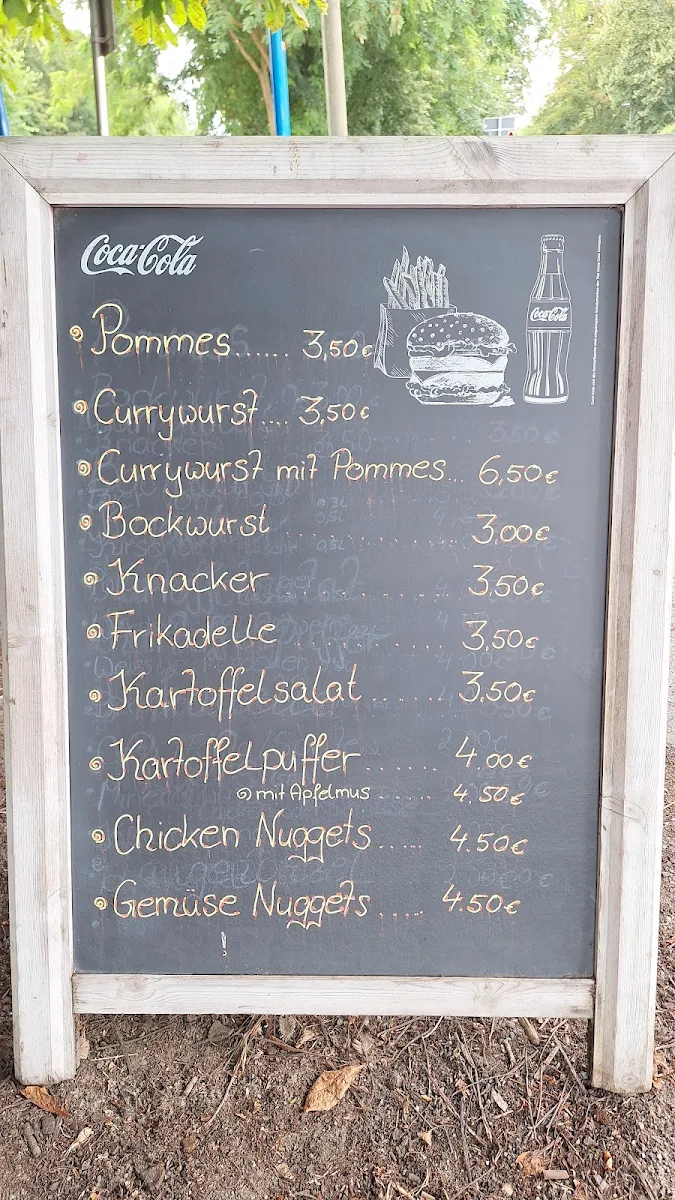 Coca-Cola
Coca-Cola
Pommes...... 3,50€
Currywurst... 3,50€
Currywurst mit Pommes... 6,50€
Bockwurst ............... 3,00€
Knacker ............... 3,50€
Frikadelle ............... 3,50€
Kartoffelsalat ........ 3,50€
Kartoffelpuffer ....... 4.00€
mit Apfelmus ...... 4.50€
Chicken Nuggets..... 4.50€
Gemüse Nuggets ..... 4.50€